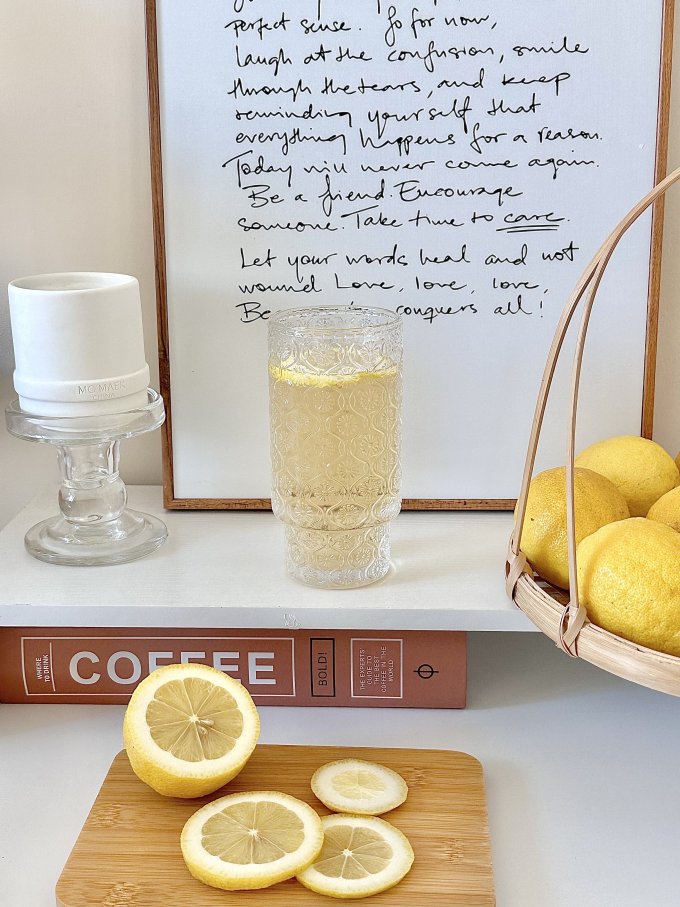 perfect sense. So for now,
laugh at the confusion, smile
through the tears, and keep
reminding yourself that
everything happens for a reason.
Today will never come again.
Be a friend. Encourage
someone. Take time to care.
Let your words heal and not
wound Love, love, love,
Be conquers all!
MC.MAER
WHERE
TO DRINK
COFFEE
BOLD!
THE EXPERTS
GUIDE TO
THE BEST
COFFEE IN THE
WORLD